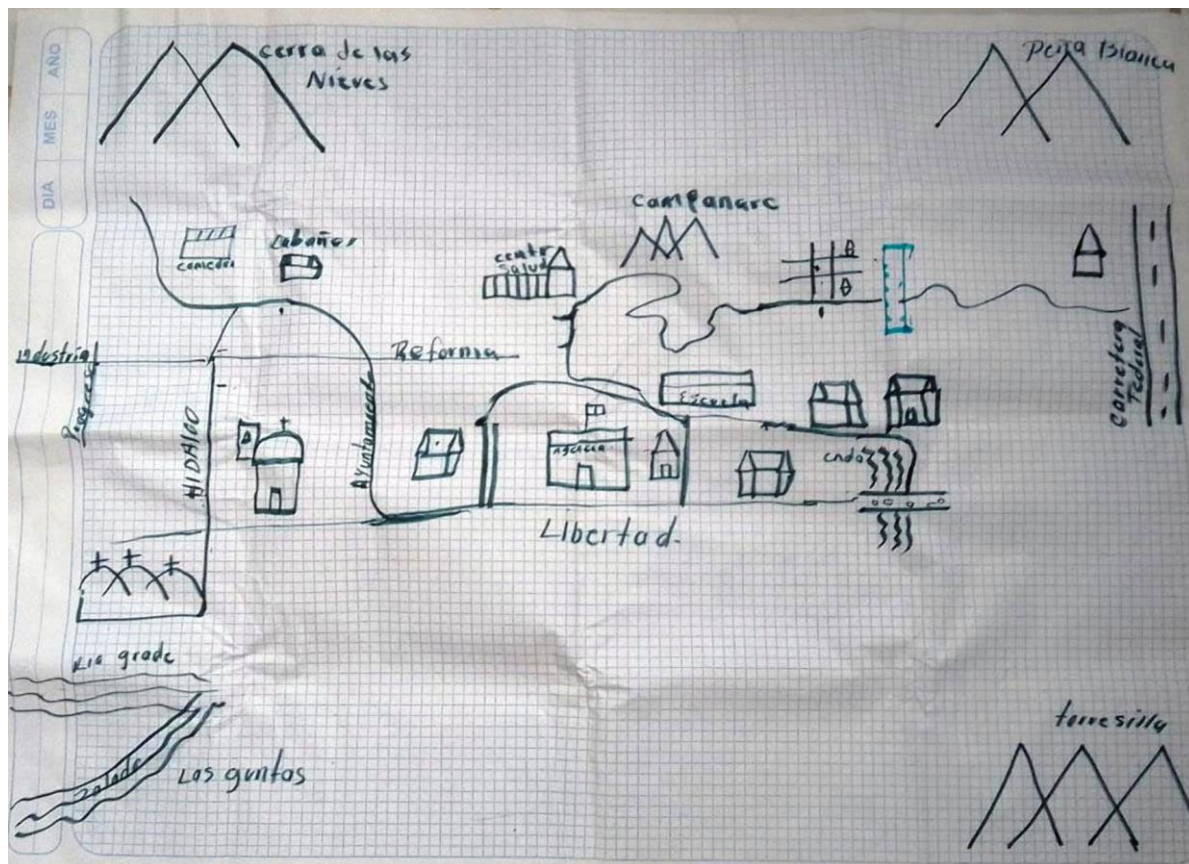 AÑO
MES
DIA
cerro de las
Nieves
Peña Blanca
Campanare
Cabañas
comedor
centr
salud
industrial
Reforma
Progreso
HIDALGO
Ayuntamiento
Escuela
Agencia
Libertad.
Carretera
Federal
Rio grade
Zalado
Las guntas
torresilla